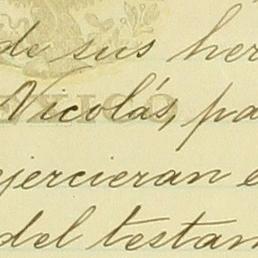 de sus her
Nicolás, pa
ejercieran e
del testam